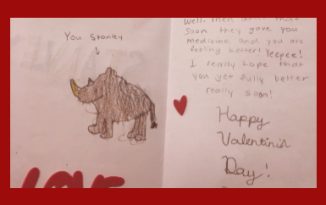 You Stanley
LOVE
well, then
soon they gave you
medicine and you are
feeling better! Yeepee!
I really hope that
you get fully better
really soon!
Happy
Valentinis
Day!